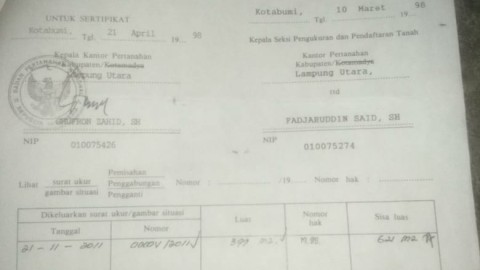 UNTUK SERTIPIKAT
Kotabumi, Tgl. 21 April 19.. 98
Kepala Kantor Pertanahan
Kabupaten/Kotamadya
Lampung Utara
ZAHID, SH
NIP
010075426
Kotabumi, Tgl. 10 Maret 98
Kepala Seksi Pengukuran dan Pendaftaran Tanah
Kantor Pertanahan
Kabupaten/Kotamadya
Lampung Utara,
ttd
FADJARUDDIN SAID, SH
NIP
010075274
Lihat surat ukur / gambar situasi Pemisahan / Penggabungan / Pengganti Nomor : /19 Nomor hak :
Dikeluarkan surat ukur/gambar situasi Luas Nomor hak Sisa luas
Tanggal Nomor
21-11-2011 /2011 M2 621 M2